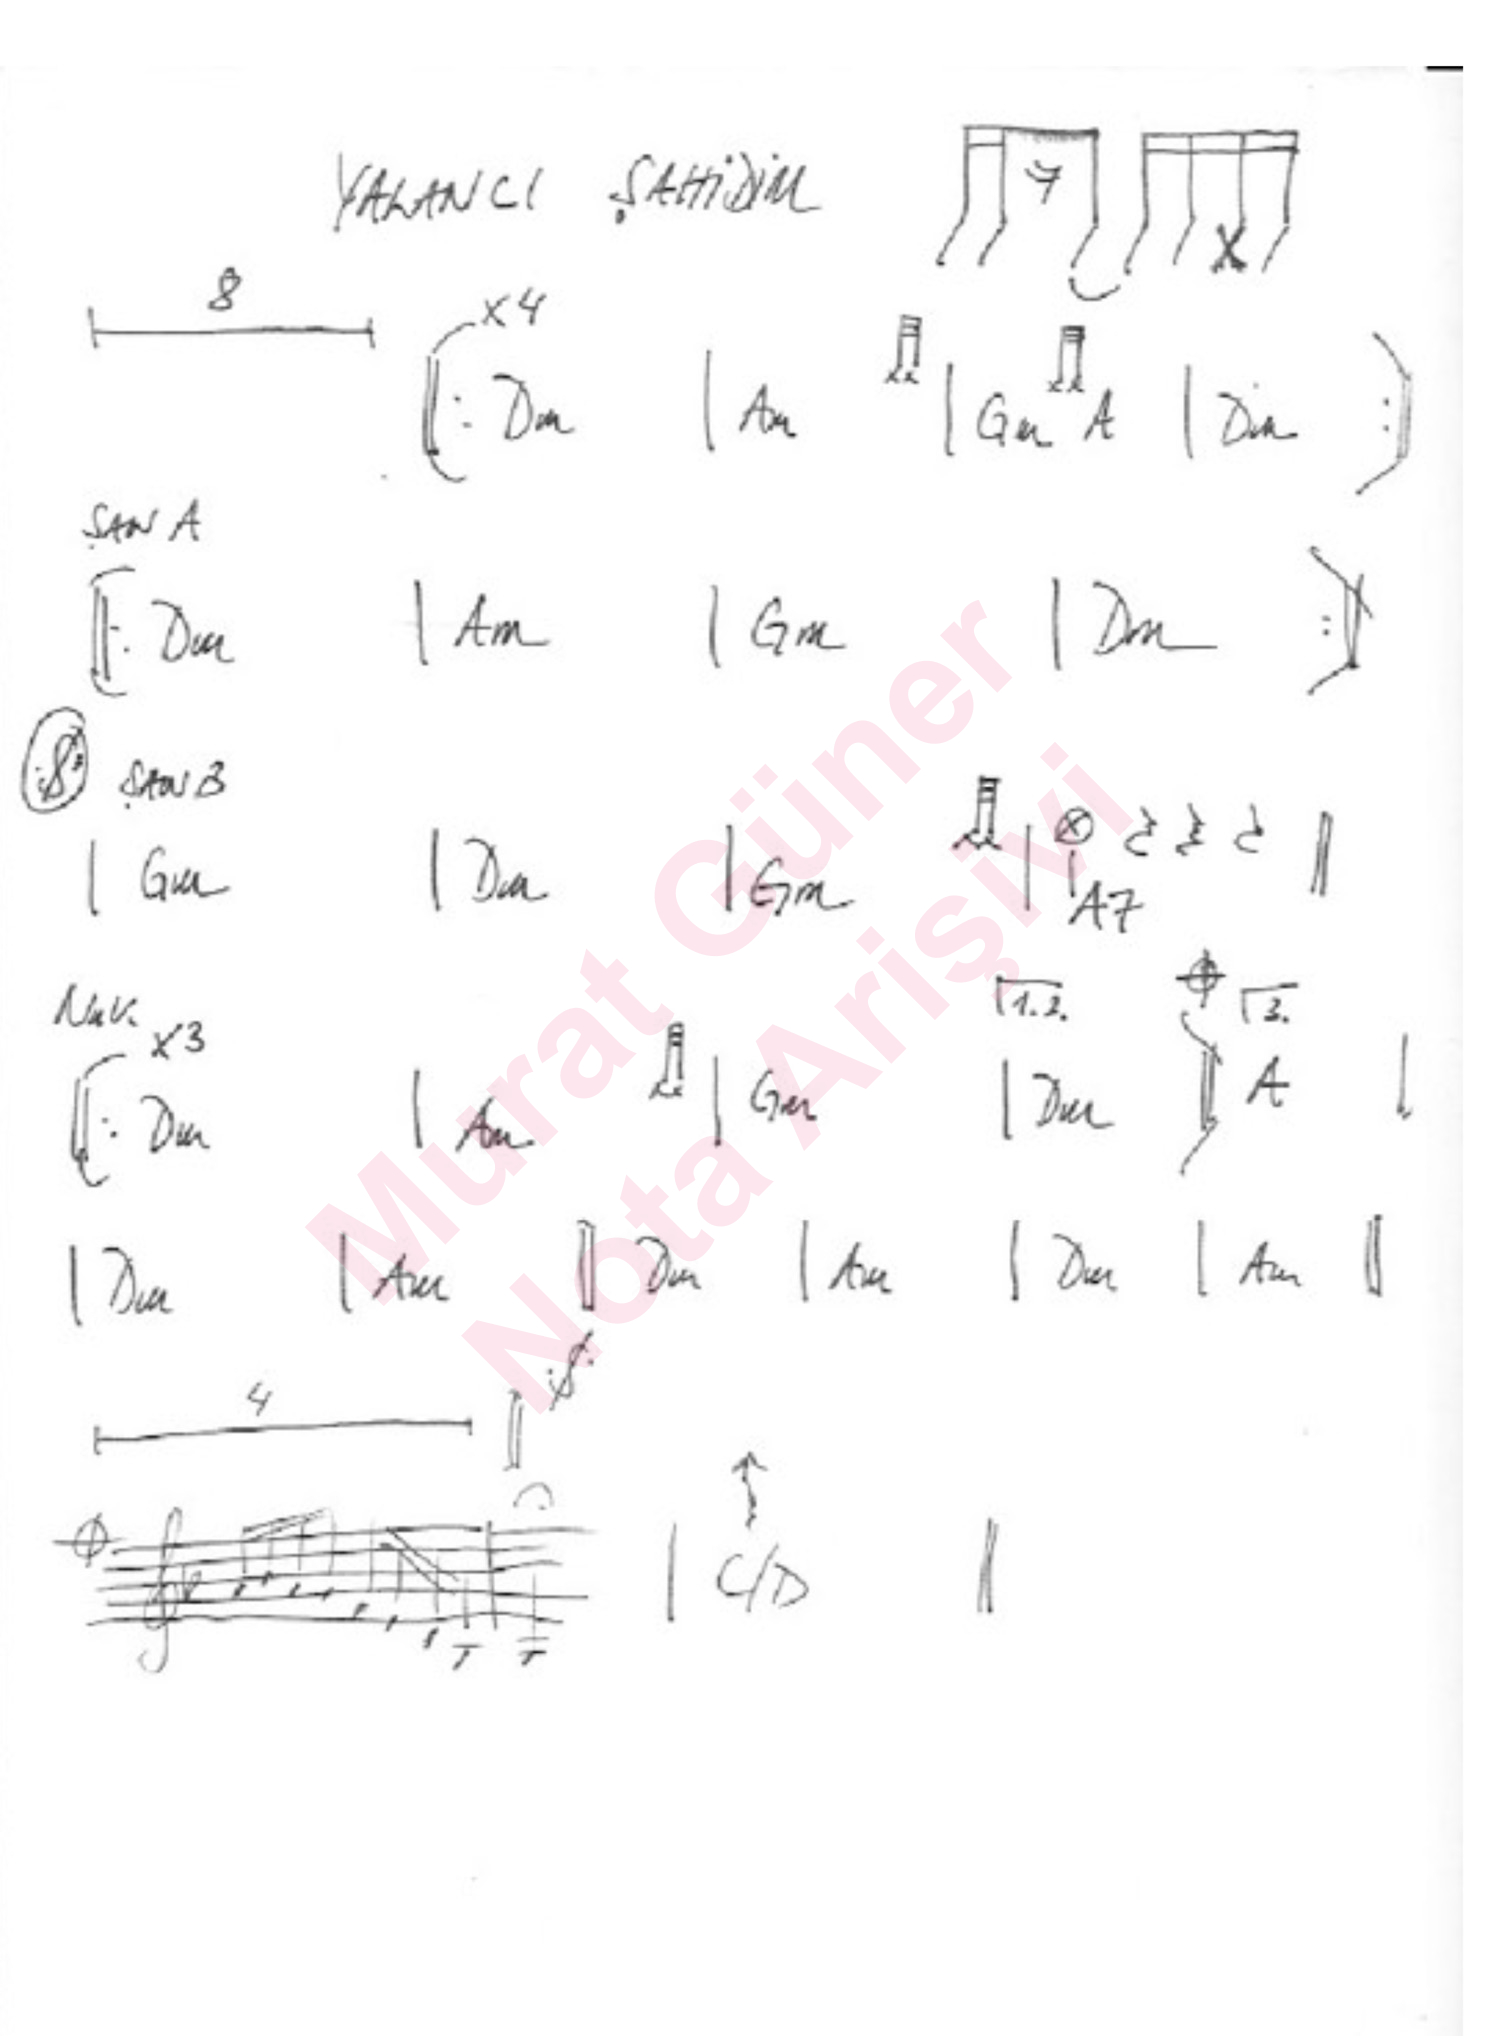 YALANCI ŞAHİDİM 7
8
x4
Dm | Am | Gm A | Dm
ŞAN A
Dm | Am | Gm | Dm
ŞAN B
| Gm | Dm | Gm | A7
Nak.
x3 1.2. 3.
Dm | Am | Gm | Dm A |
| Dm | Am Dm | Am | Dm | Am
4
| C/D
Murat Güner
Nota Arişivi